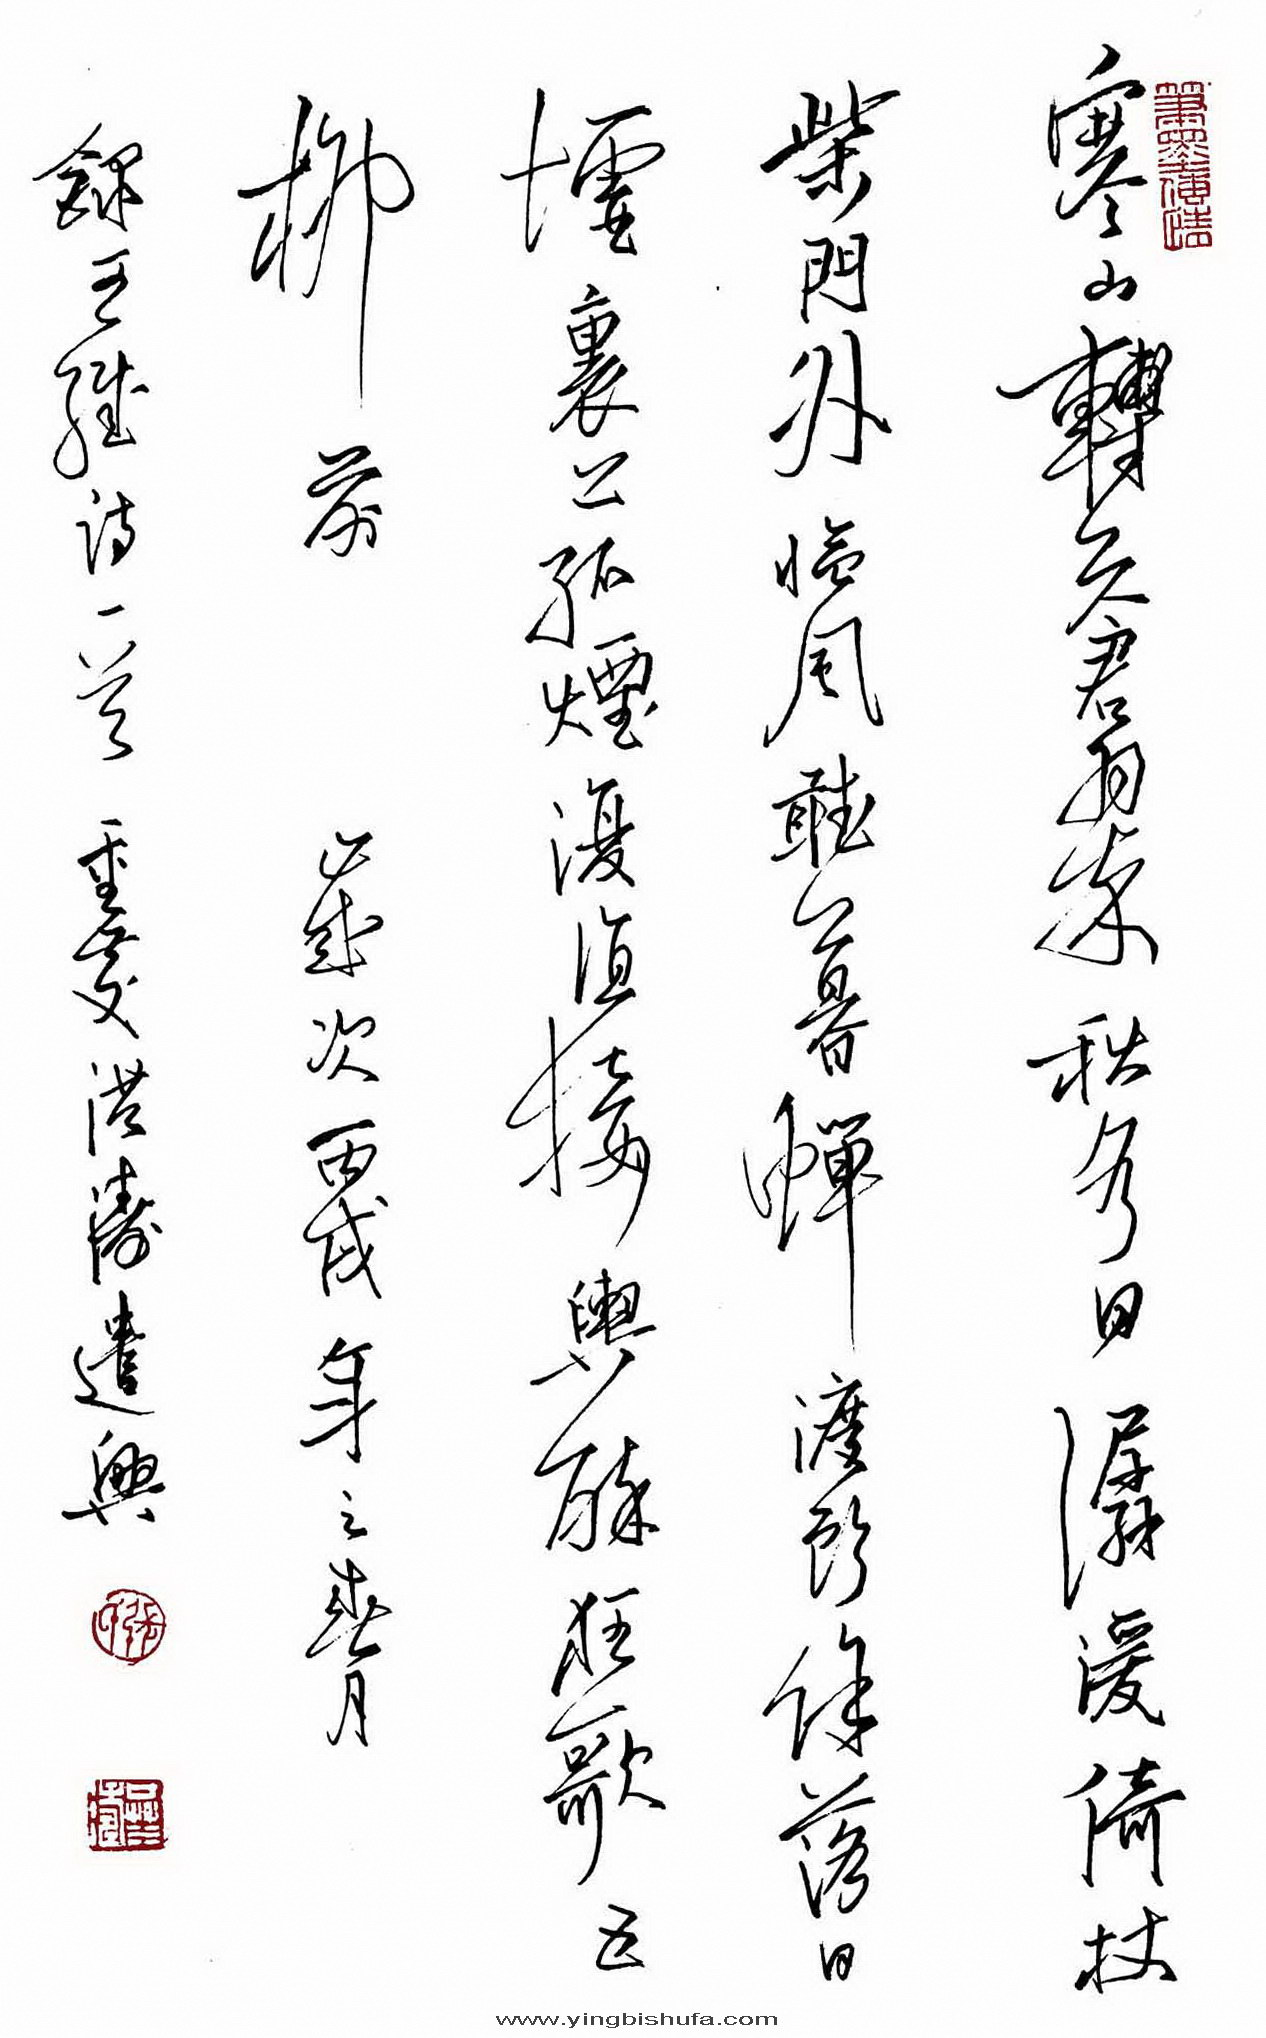 筆墨傳情
寒山轉蒼翠秋水日潺湲倚杖
柴門外臨風聽暮蟬渡頭餘落日
墟裏上孤煙復值接輿醉狂歌五
柳前 歲次丙戌年之春月
錄王維詩一首 重慶洪濤遣興
www.yingbishufa.com